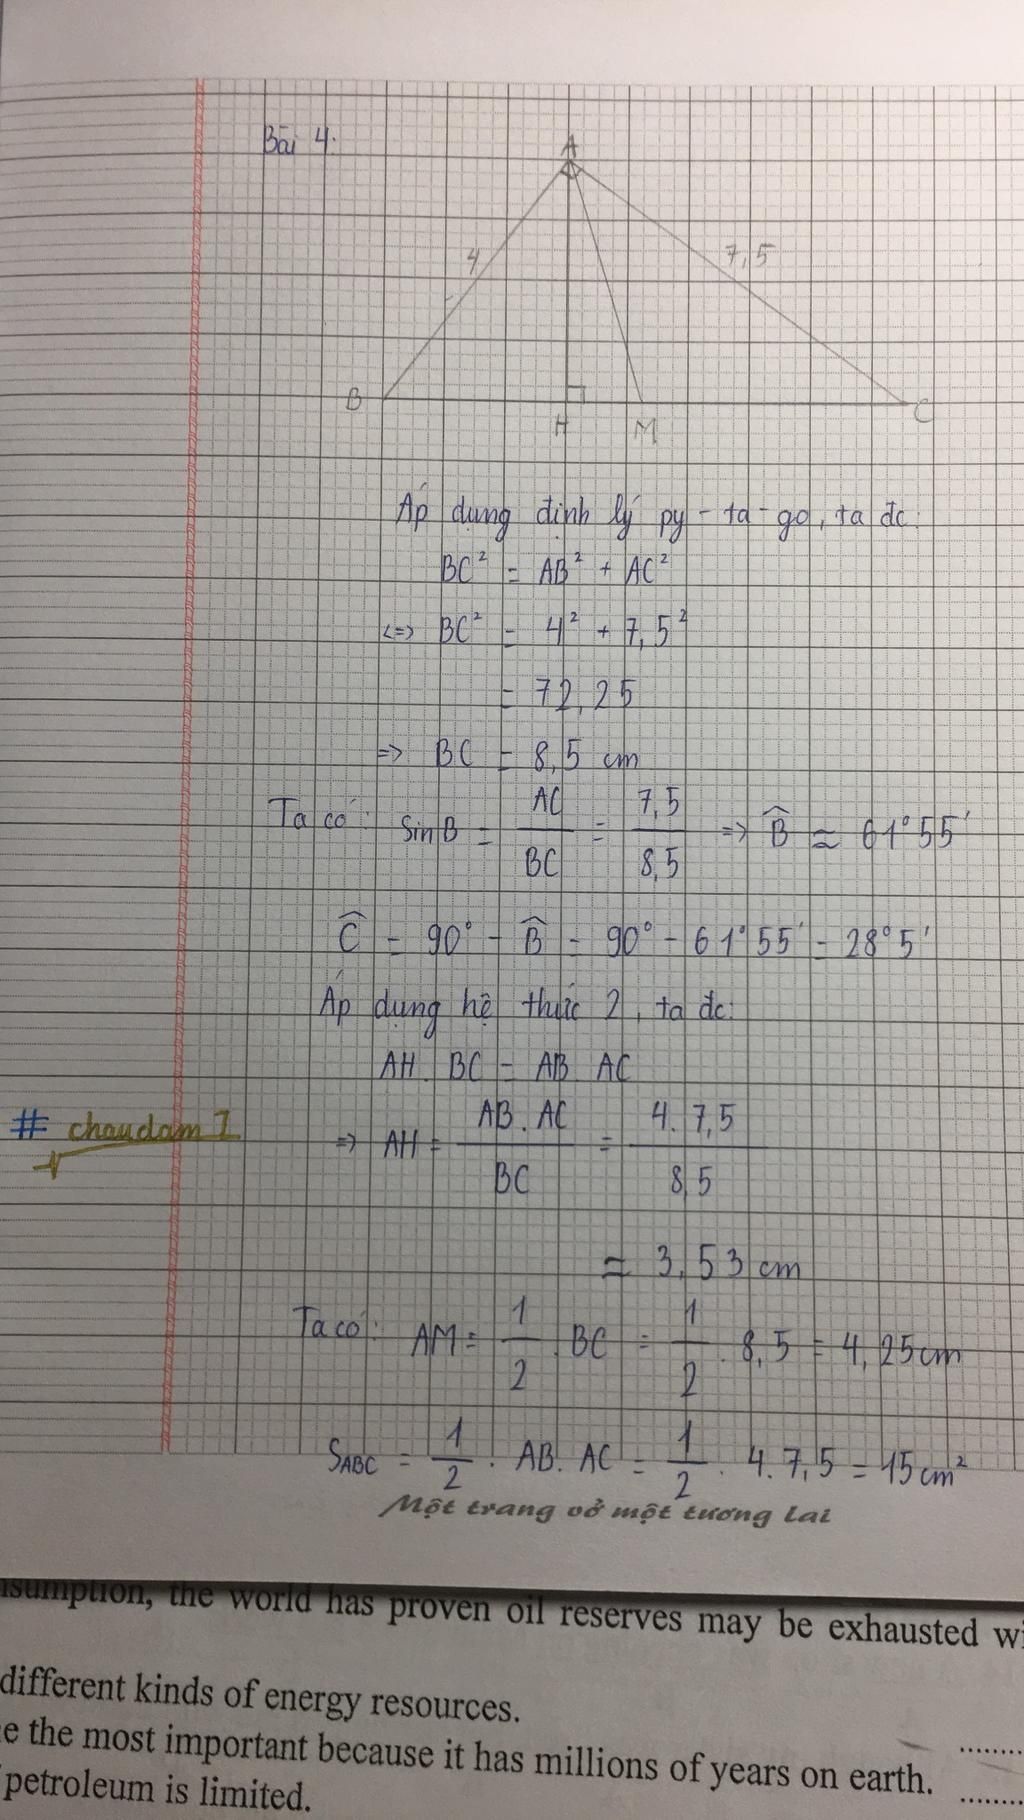 Bài 4.
A
4
7,5
B
H
M
C
Áp dụng định lý py - ta - go, ta đc.
BC² = AB² + AC²
<=> BC² = 4² + 7,5²
= 72,25
=> BC = 8,5 cm
Ta có: Sin B = AC/BC = 7,5/8,5 => B̂ ≈ 61°55'
Ĉ = 90° - B̂ = 90° - 61°55' = 28°5'
Áp dụng hệ thức 2, ta đc:
AH. BC = AB. AC
# choudam1
=> AH = AB. AC/BC = 4. 7,5/8,5
≈ 3,53 cm
Ta có: AM = 1/2. BC = 1/2. 8,5 = 4,25 cm
S_ABC = 1/2. AB. AC = 1/2. 4. 7,5 = 15 cm²
Một trang vở một tương lai
nsumption, the world has proven oil reserves may be exhausted wi
different kinds of energy resources.
e the most important because it has millions of years on earth.
petroleum is limited.